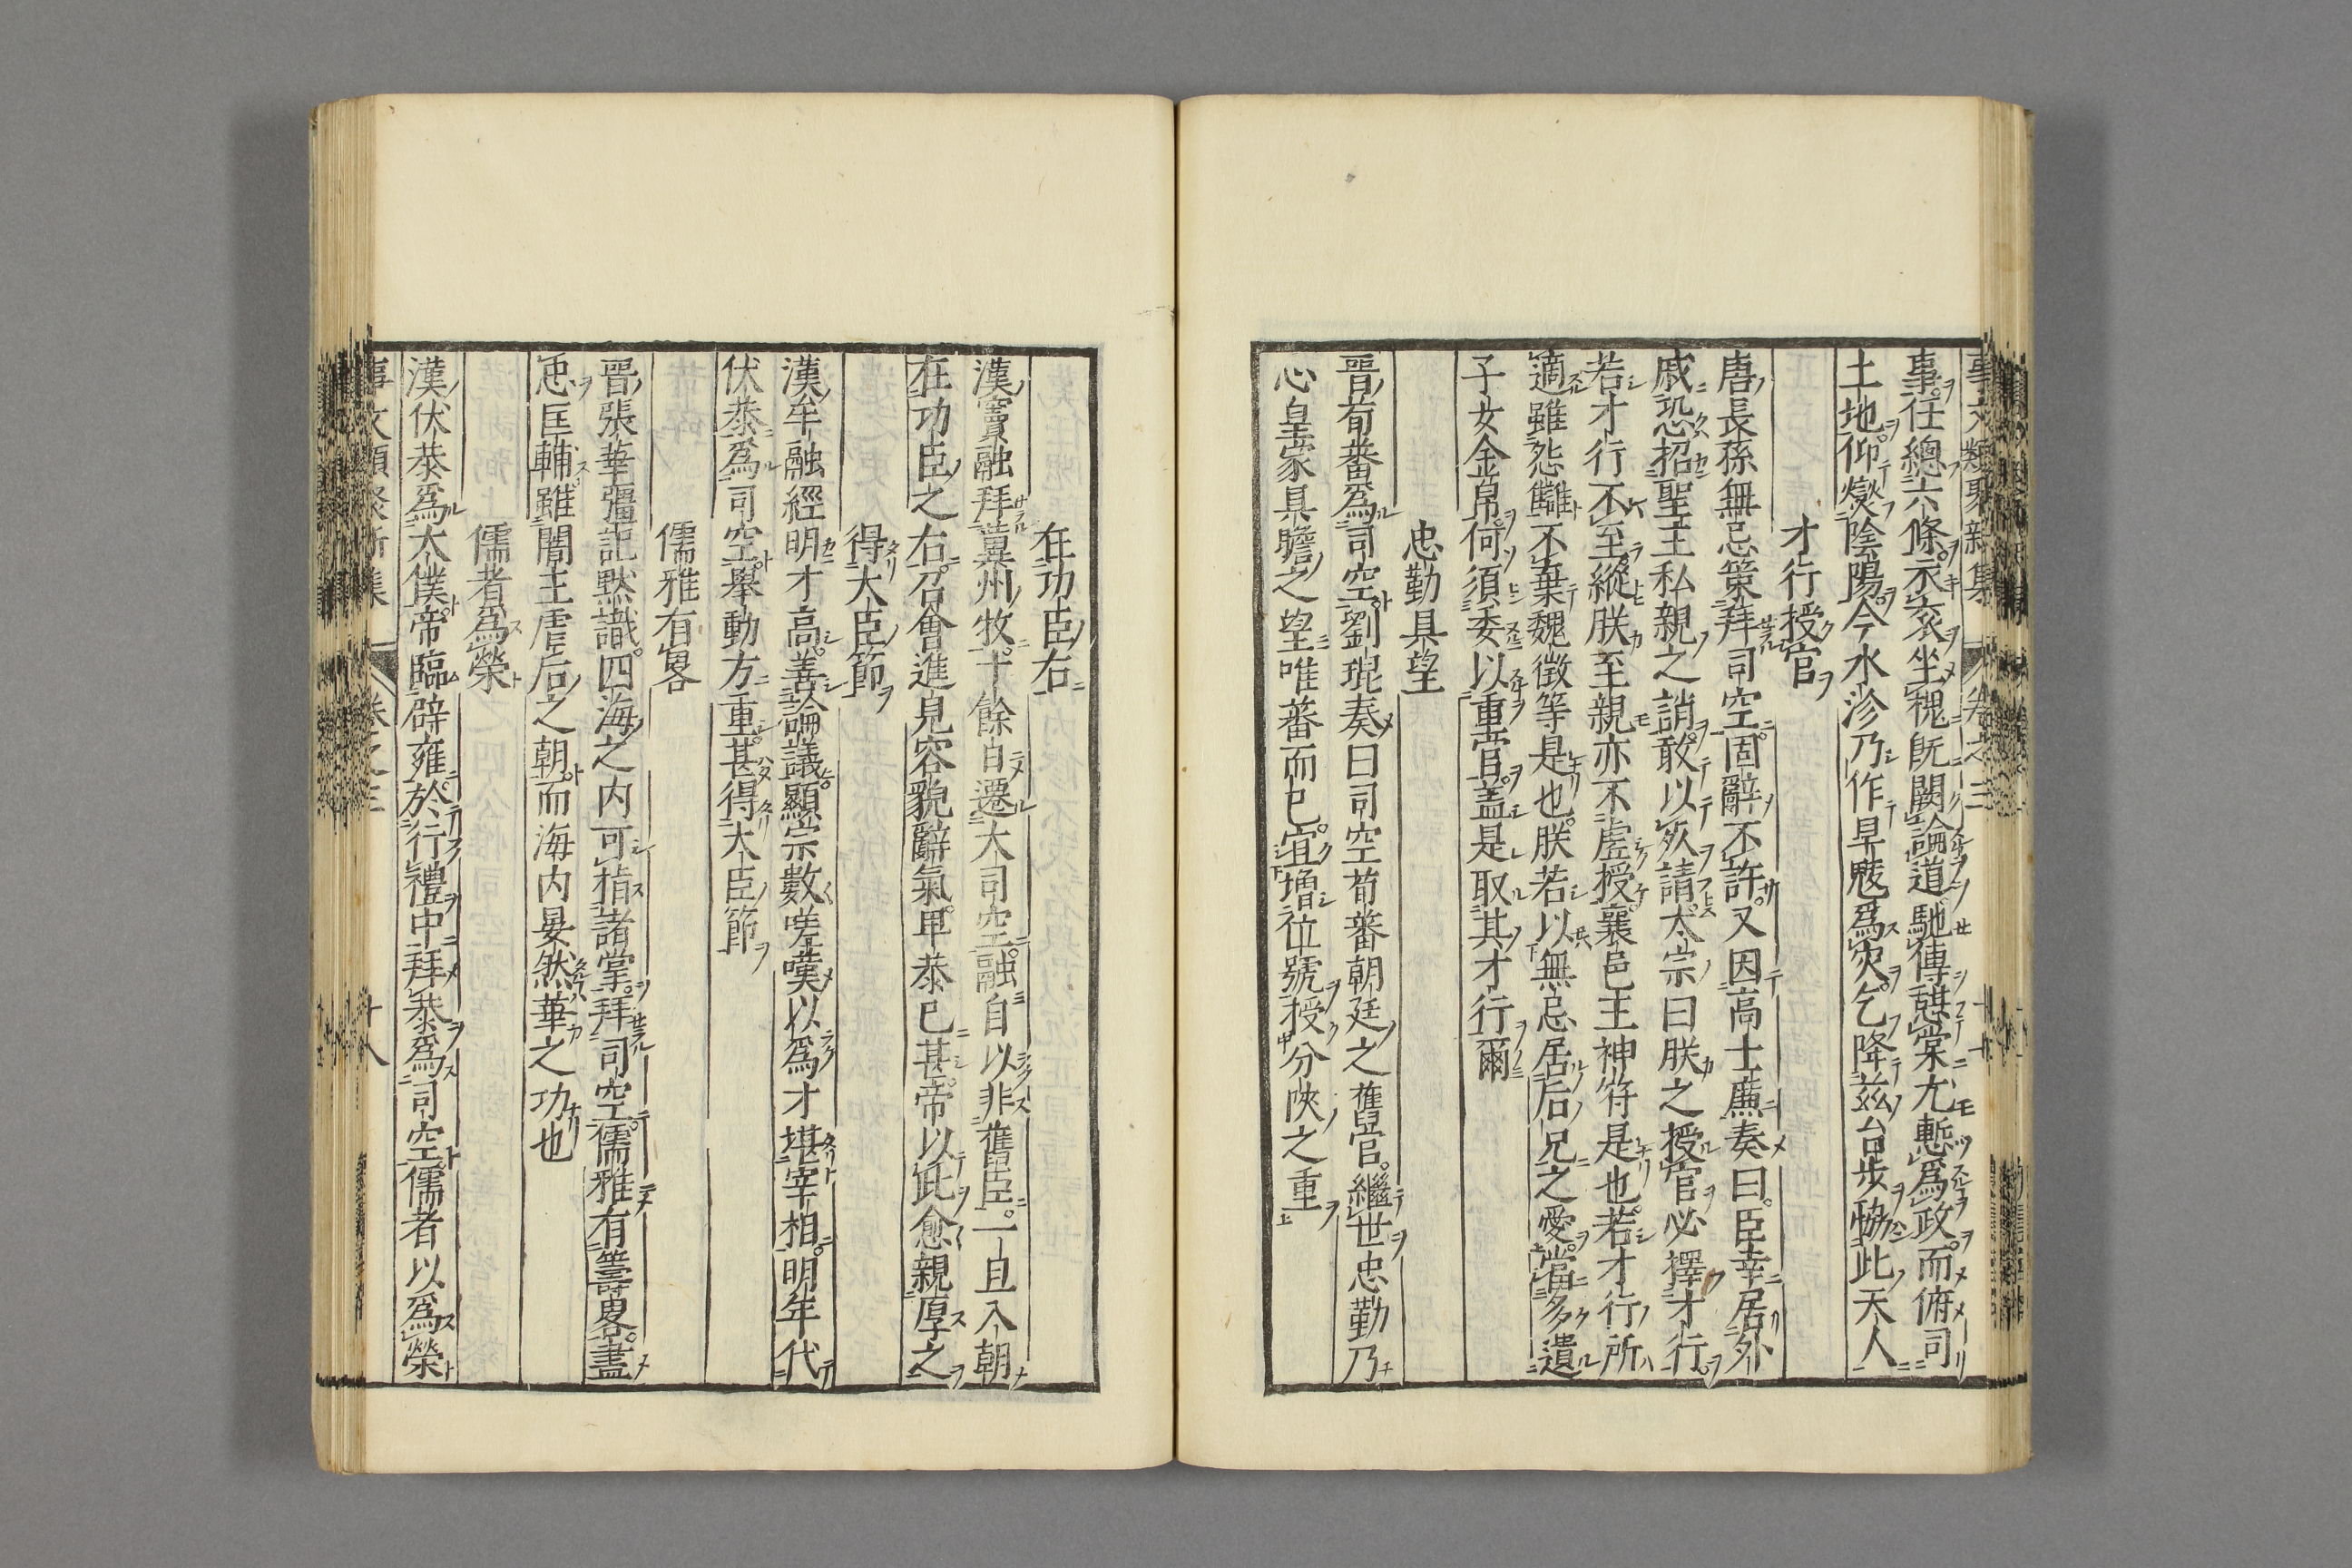 事。任總六條。示衮坐槐旣闕論道馳傳憇棠尤慙爲政。而俯司
土地。仰燮陰陽。今水沴乃作旱魃爲灾。乞降兹台步恊此天人
才行授官
唐長孫無忌策拜司空。固辭不許。又因高士廉奏曰。臣幸居外
戚恐招聖主私親之誚。敢以㱾請太宗曰朕之授官必擇才行。
若才行不至。縱朕至親亦不虛授。襄邑王神符是也。若才行所
適雖怨讎不棄魏徵等是也。朕若以無忌居后兄之愛。當多遺
子女金帛。何須委以重官。盖是取其才行爾
忠勤具望
晋荀蕃爲司空。劉琨奏曰司空荀蕃朝廷之舊官。繼世忠勤乃
心皇家具瞻之望唯蕃而已。宜增位號授分陝之重
在功臣右
漢竇融拜冀州牧。十餘日遷大司空。融自以非舊臣。一旦入朝
在功臣之右。召會進見容貌辭氣。卑恭已甚。帝以此愈親厚之
得大臣節
漢牟融經明才高。善論議顯宗數嗟嘆以爲才堪宰相。明年代
伏恭爲司空。舉動方重。甚得大臣節
儒雅有畧
晋張華彊記默識。四海之内可指諸掌。拜司空。儒雅有籌畧。盡
忠匡輔。雖闇主虐后之朝。而海内晏然華之功也
儒者爲榮
漢伏恭爲大僕。帝臨辟雍。於行禮中拜恭爲司空。儒者以爲榮